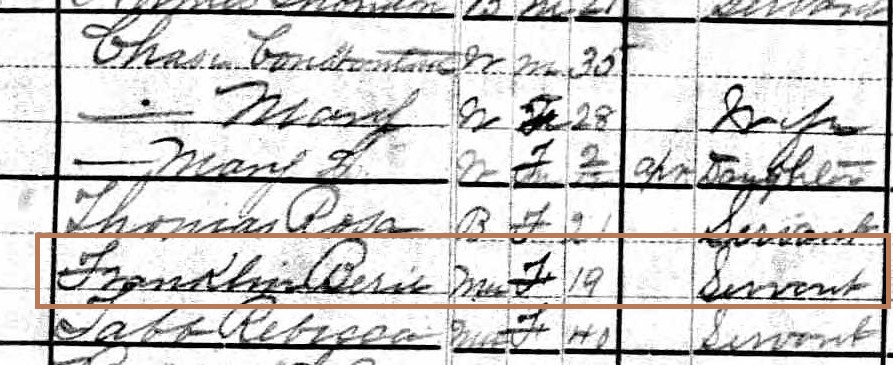 B M 21 Servant
Chase Constantine W M 35
— Mary W F 28 Wife
— Mary F. W F 2/12 Apr Daughter
Thomas Rosa B F 21 Servant
Franklin Berie Mu F 19 Servant
Tabb Rebecca Mu F 40 Servant